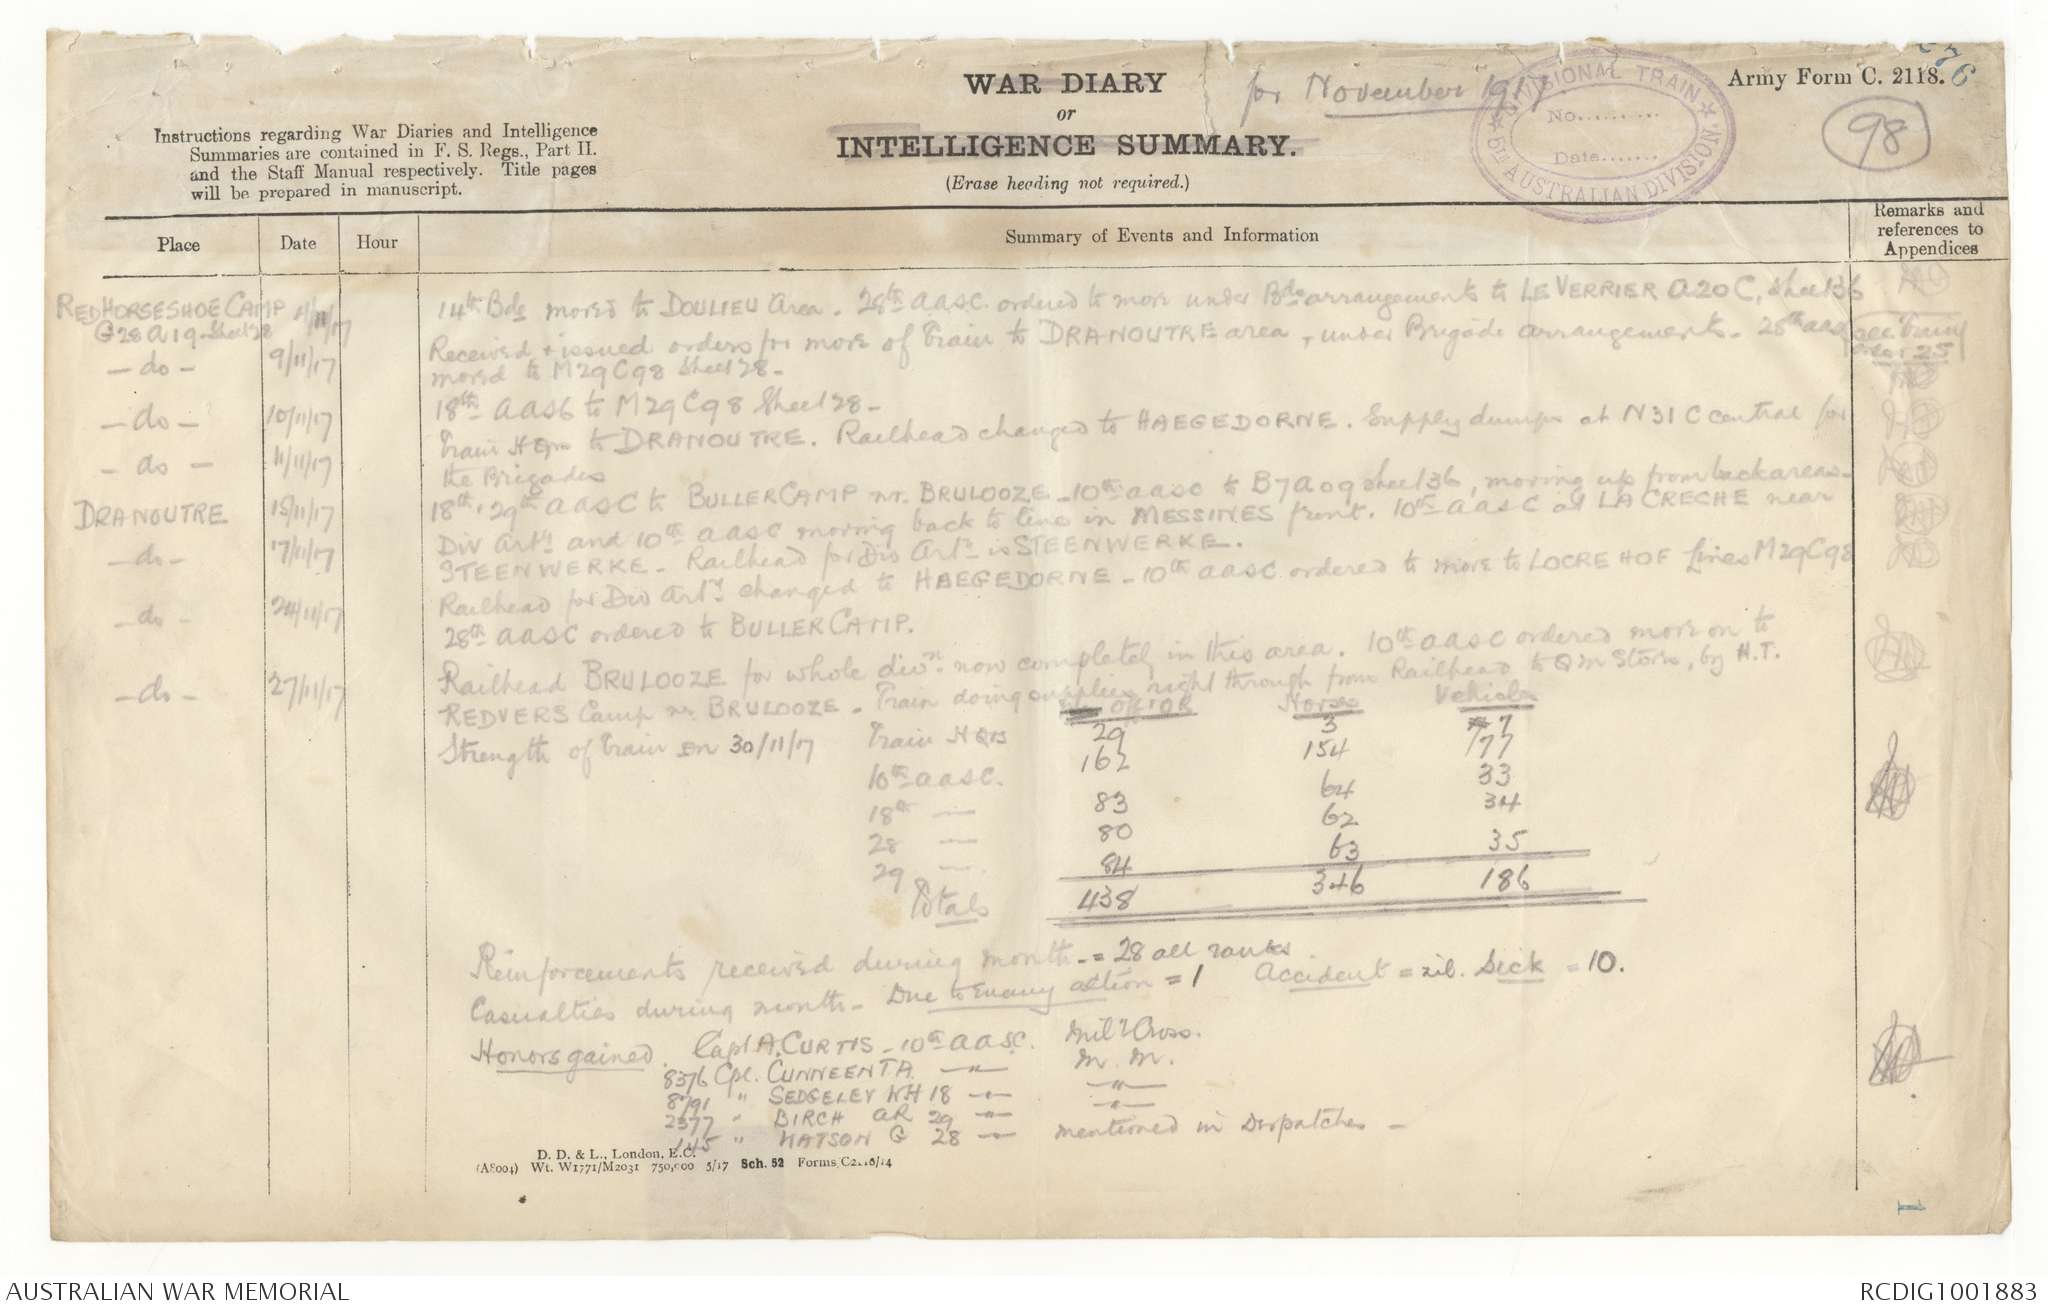 WAR DIARY
or
INTELLIGENCE SUMMARY.
(Erase heading not required.)
for November 1917
Army Form C. 2118.
98
DIVISIONAL TRAIN
No.........
Date.......
5TH AUSTRALIAN DIVISION
Instructions regarding War Diaries and Intelligence
Summaries are contained in F. S. Regs., Part II.
and the Staff Manual respectively. Title pages
will be prepared in manuscript.
Place Date Hour Summary of Events and Information Remarks and references to Appendices
RED HORSESHOE CAMP
G28A19 Sheet 28
14th Bde moved to DOULIEU Area. 28th AASC ordered to move under Bde arrangements to LE VERRIER A20C, Sheet 36
- do - 9/11/17 Received & issued orders for move of Train to DRANOUTRE area, under Brigade arrangements. 28th AASC
moved to M29C98 Sheet 28 -
see Train order 25
- do - 10/11/17 18th AASC to M29C98 Sheet 28 -
- do - 11/11/17 Train HQrs to DRANOUTRE. Railhead changed to HAEGEDORNE. Supply dumps at N31C central for
the Brigades
DRANOUTRE 15/11/17 18th, 29th AASC to BULLER CAMP nr. BRULOOZE - 10th AASC to B7A09 Sheet 36, moving up from back areas -
- do - 17/11/17 Div Arty and 10th AASC moving back to lines in MESSINES front. 10th AASC at LA CRECHE near
STEENWERKE - Railhead for Div Arty is STEENWERKE.
- do - 24/11/17 Railhead for Div Arty changed to HAEGEDORNE - 10th AASC ordered to move to LOCRE HOF Lines M29C98
28th AASC ordered to BULLER CAMP.
- do - 27/11/17 Railhead BRULOOZE for whole divn. now completely in this area. 10th AASC ordered move on to
REDVERS Camp nr BRULOOZE - Train doing supplies right through from Railhead to QM Stores, by H.T.
Strength of Train on 30/11/17 Off OR Horses Vehicles
Train HQrs 29 3 7
10th AASC. 162 154 77
18th — 83 64 33
28 — 80 62 34
29 — 84 63 35
Totals 438 346 186
Reinforcements received during month - = 28 all ranks
Casualties during month - Due to Enemy action = 1 Accident = nil. Sick = 10.
Honors gained. Capt A. CURTIS - 10th AASC. Mily Cross.
8376 Cpl. CUNNEEN TA —"— M. M.
8791 " SEDGELEY WH 18 —"— —"—
2377 " BIRCH AR 29 —"— —"—
145 " WATSON G 28 —"— mentioned in Despatches -
D. D. & L., London, E.C.
(A8004) Wt. W1771/M2031 750,000 5/17 Sch. 52 Forms/C2118/14
1
AUSTRALIAN WAR MEMORIAL
RCDIG1001883